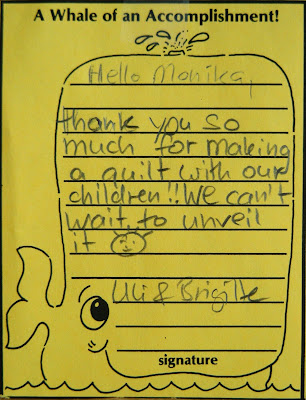 A Whale of an Accomplishment!
Hello Monika,
thank you so
much for making
a quilt with our
children!! We can't
wait to unveil
it
Uli & Brigitte
signature